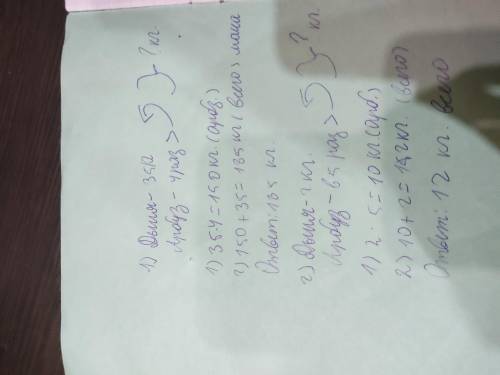 1) Дыня - 35кг
Арбуз - 4 раз > ? кг.
1) 35·4=150 кг. (арбуз)
2) 150+35=185 кг (всего) маша
Ответ: 185 кг.
2) Дыня - 2 кг.
Арбуз - в 5 раз > ? кг.
1) 2·5=10 кг (арб.)
2) 10+2=12 кг. (всего)
Ответ: 12 кг. всего